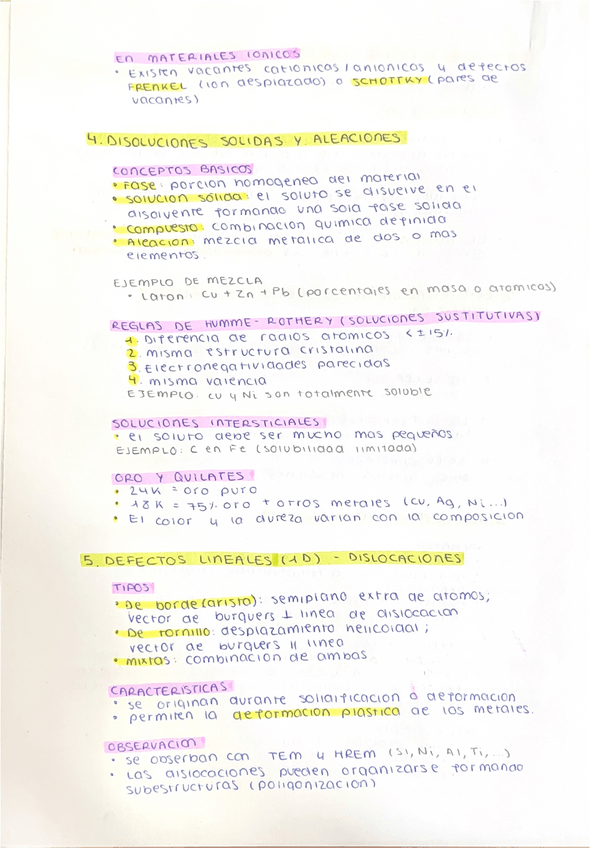 EN MATERIALES IONICOS
• Existen vacantes cationicas/anionicas y defectos
FRENKEL (ion desplazado) o SCHOTTKY (pares de
vacantes)
4. DISOLUCIONES SOLIDAS Y ALEACIONES
CONCEPTOS BASICOS
• FASE: porcion homogenea del material
• solucion solida: el soluto se disuelve en el
disolvente formando una sola fase solida
• compuesto: combinacion quimica definida
• Aleacion: mezcla metalica de dos o mas
elementos.
EJEMPLO DE MEZCLA
• Laton: Cu + Zn + Pb (porcentajes en masa o atomicos)
REGLAS DE HUMME-ROTHERY (SOLUCIONES SUSTITUTIVAS)
1. Diferencia de radios atomicos < ±15%
2. misma estructura cristalina
3. Electronegatividades parecidas
4. misma valencia
EJEMPLO: Cu y Ni son totalmente soluble
SOLUCIONES INTERSTICIALES
• el soluto debe ser mucho mas pequeños.
EJEMPLO: C en Fe (solubilidad limitada)
ORO Y QUILATES
• 24K = oro puro
• 18K = 75% oro + otros metales (Cu, Ag, Ni...)
• El color y la dureza varian con la composicion
5. DEFECTOS LINEALES (1D) - DISLOCACIONES
TIPOS
• De borde (arista): semiplano extra de atomos;
vector de burguers ⊥ linea de dislocacion
• De tornillo: desplazamiento helicoidal;
vector de burguers || linea
• mixtas: combinacion de ambas
CARACTERISTICAS
• se originan durante solidificacion o deformacion
• permiten la deformacion plastica de los metales.
OBSERVACION
• se obserban con TEM y HREM (Si, Ni, Al, Ti,...)
• Las dislocaciones pueden organizarse formando
subestructuras (poligonizacion)